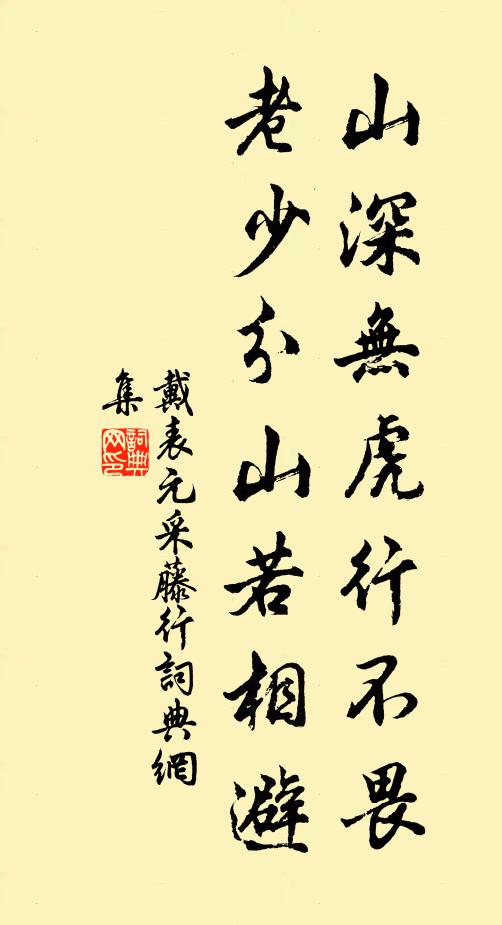 山深無虎行不畏
老少分山若相避
戴表元采藤行詞典網
集
詞典网印